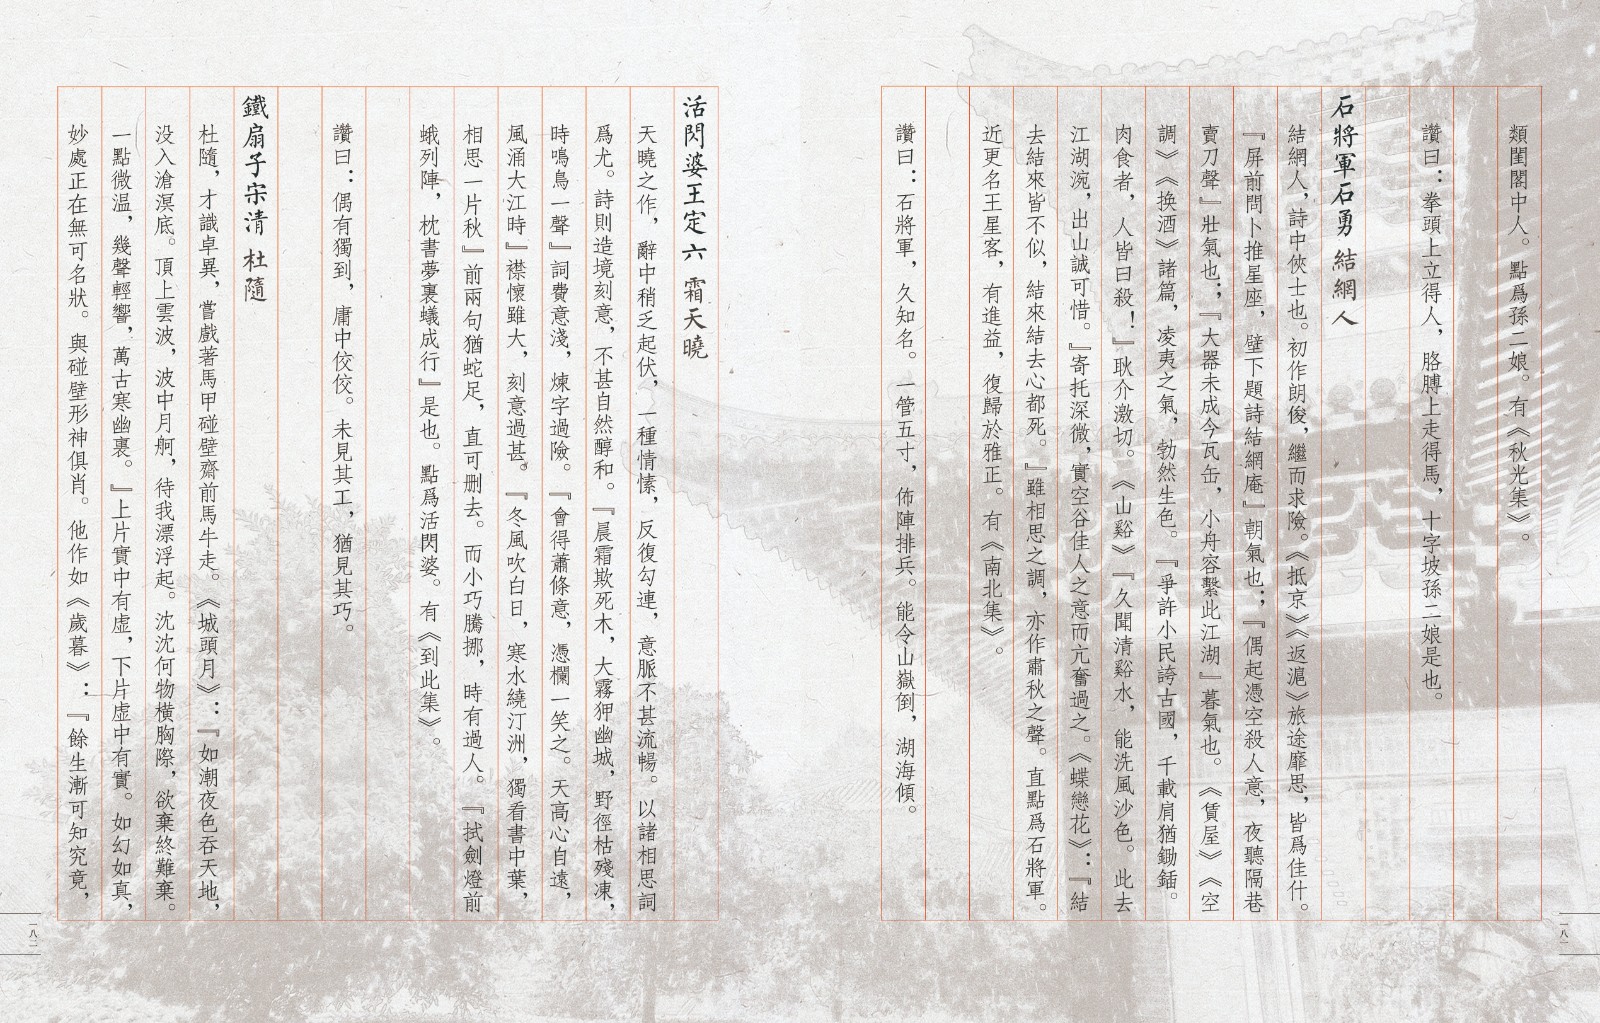 類閨閣中人。點爲孫二娘。有《秋光集》。
讚曰：拳頭上立得人，胳膊上走得馬，十字坡孫二娘是也。
石將軍石勇 結網人
結網人，詩中俠士也。初作朗俊，繼而求險。《抵京》《返滬》旅途靡思，皆爲佳什。
『屏前問卜推星座，壁下題詩結網庵』朝氣也；『偶起憑空殺人意，夜聽隔巷
賣刀聲』壯氣也；『大器未成今瓦缶，小舟容繫此江湖』暮氣也。《賃屋》《空
調》《换酒》諸篇，凌夷之氣，勃然生色。『爭許小民誇古國，千載肩猶鋤鍤。
肉食者，人皆曰殺！』耿介激切。《山谿》『久聞清谿水，能洗風沙色。此去
江湖涴，出山誠可惜。』寄托深微，實空谷佳人之意而亢奮過之。《蝶戀花》：『結
去結來皆不似，結來結去心都死。』雖相思之調，亦作肅秋之聲。直點爲石將軍。
近更名王星客，有進益，復歸於雅正。有《南北集》。
讚曰：石將軍，久知名。一管五寸，佈陣排兵。能令山嶽倒，湖海傾。
一八一
活閃婆王定六 霜天曉
天曉之作，辭中稍乏起伏，一種情愫，反復勾連，意脈不甚流暢。以諸相思詞
爲尤。詩則造境刻意，不甚自然醇和。『晨霜欺死木，大霧狎幽城，野徑枯殘凍，
時鳴鳥一聲』詞費意淺，煉字過險。『會得蕭條意，憑欄一笑之。天高心自遠，
風涌大江時』襟懷雖大，刻意過甚。『冬風吹白日，寒水繞汀洲，獨看書中葉，
相思一片秋』前兩句猶蛇足，直可删去。而小巧騰挪，時有過人。『拭劍燈前
蛾列陣，枕書夢裏蟻成行』是也。點爲活閃婆。有《到此集》。
讚曰：偶有獨到，庸中佼佼。未見其工，猶見其巧。
鐵扇子宋清 杜隨
杜隨，才識卓異，嘗戲著馬甲碰壁齋前馬牛走。《城頭月》：『如潮夜色吞天地，
没入滄溟底。頂上雲波，波中月舸，待我漂浮起。沈沈何物横胸際，欲棄終難棄。
一點微温，幾聲輕響，萬古寒幽裏。』上片實中有虚，下片虚中有實。如幻如真，
妙處正在無可名狀。與碰壁形神俱肖。他作如《歲暮》：『餘生漸可知究竟，
一八二